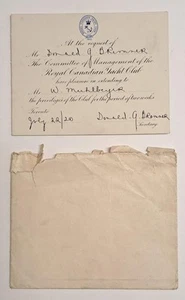 At the request of
Mr. Donald G Bremner
The Committee of Management of the
Royal Canadian Yacht Club
have pleasure in extending to
Mr. W. Muhlbeyer
the privileges of the Club for the period of two weeks
Toronto
July 22/20
Donald. G Bremner
Secretary